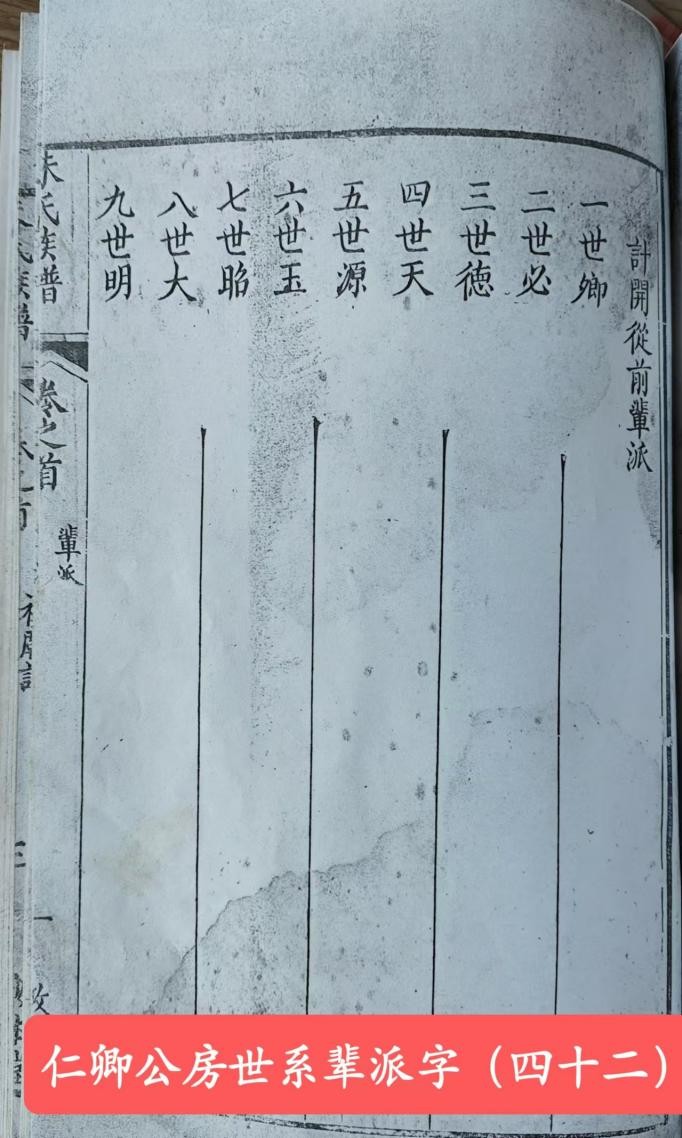 計開從前輩派
一世卿
二世必
三世德
四世天
五世源
六世玉
七世昭
八世大
九世明
朱氏族譜
卷之首
輩派
一
仁卿公房世系辈派字（四十二）